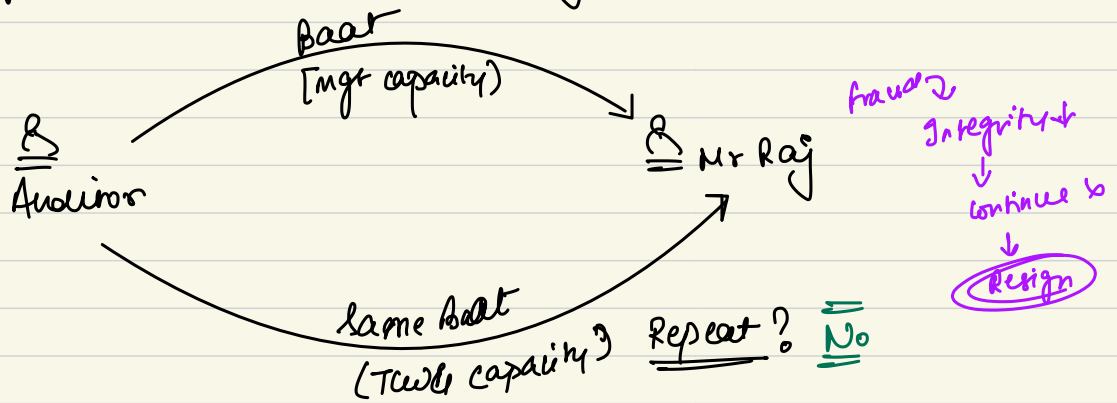 Baat
[mgt capacity)
Auditor
Mr Raj
Same Baat
(TCWG capacity)
Repeat? No
fraud
Integrity↓
↓
continue x
↓
Resign